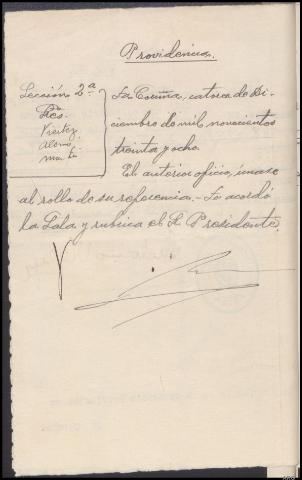 Providencia.
Sección 2ª
Sres.
Vieitez
La Coruña, catorce de Di-
ciembre de mil novecientos
treinta y ocho.
El anterior oficio, únase
al rollo de su referencia.- Lo acordó
la Sala y rubrica el Sr. Presidente,